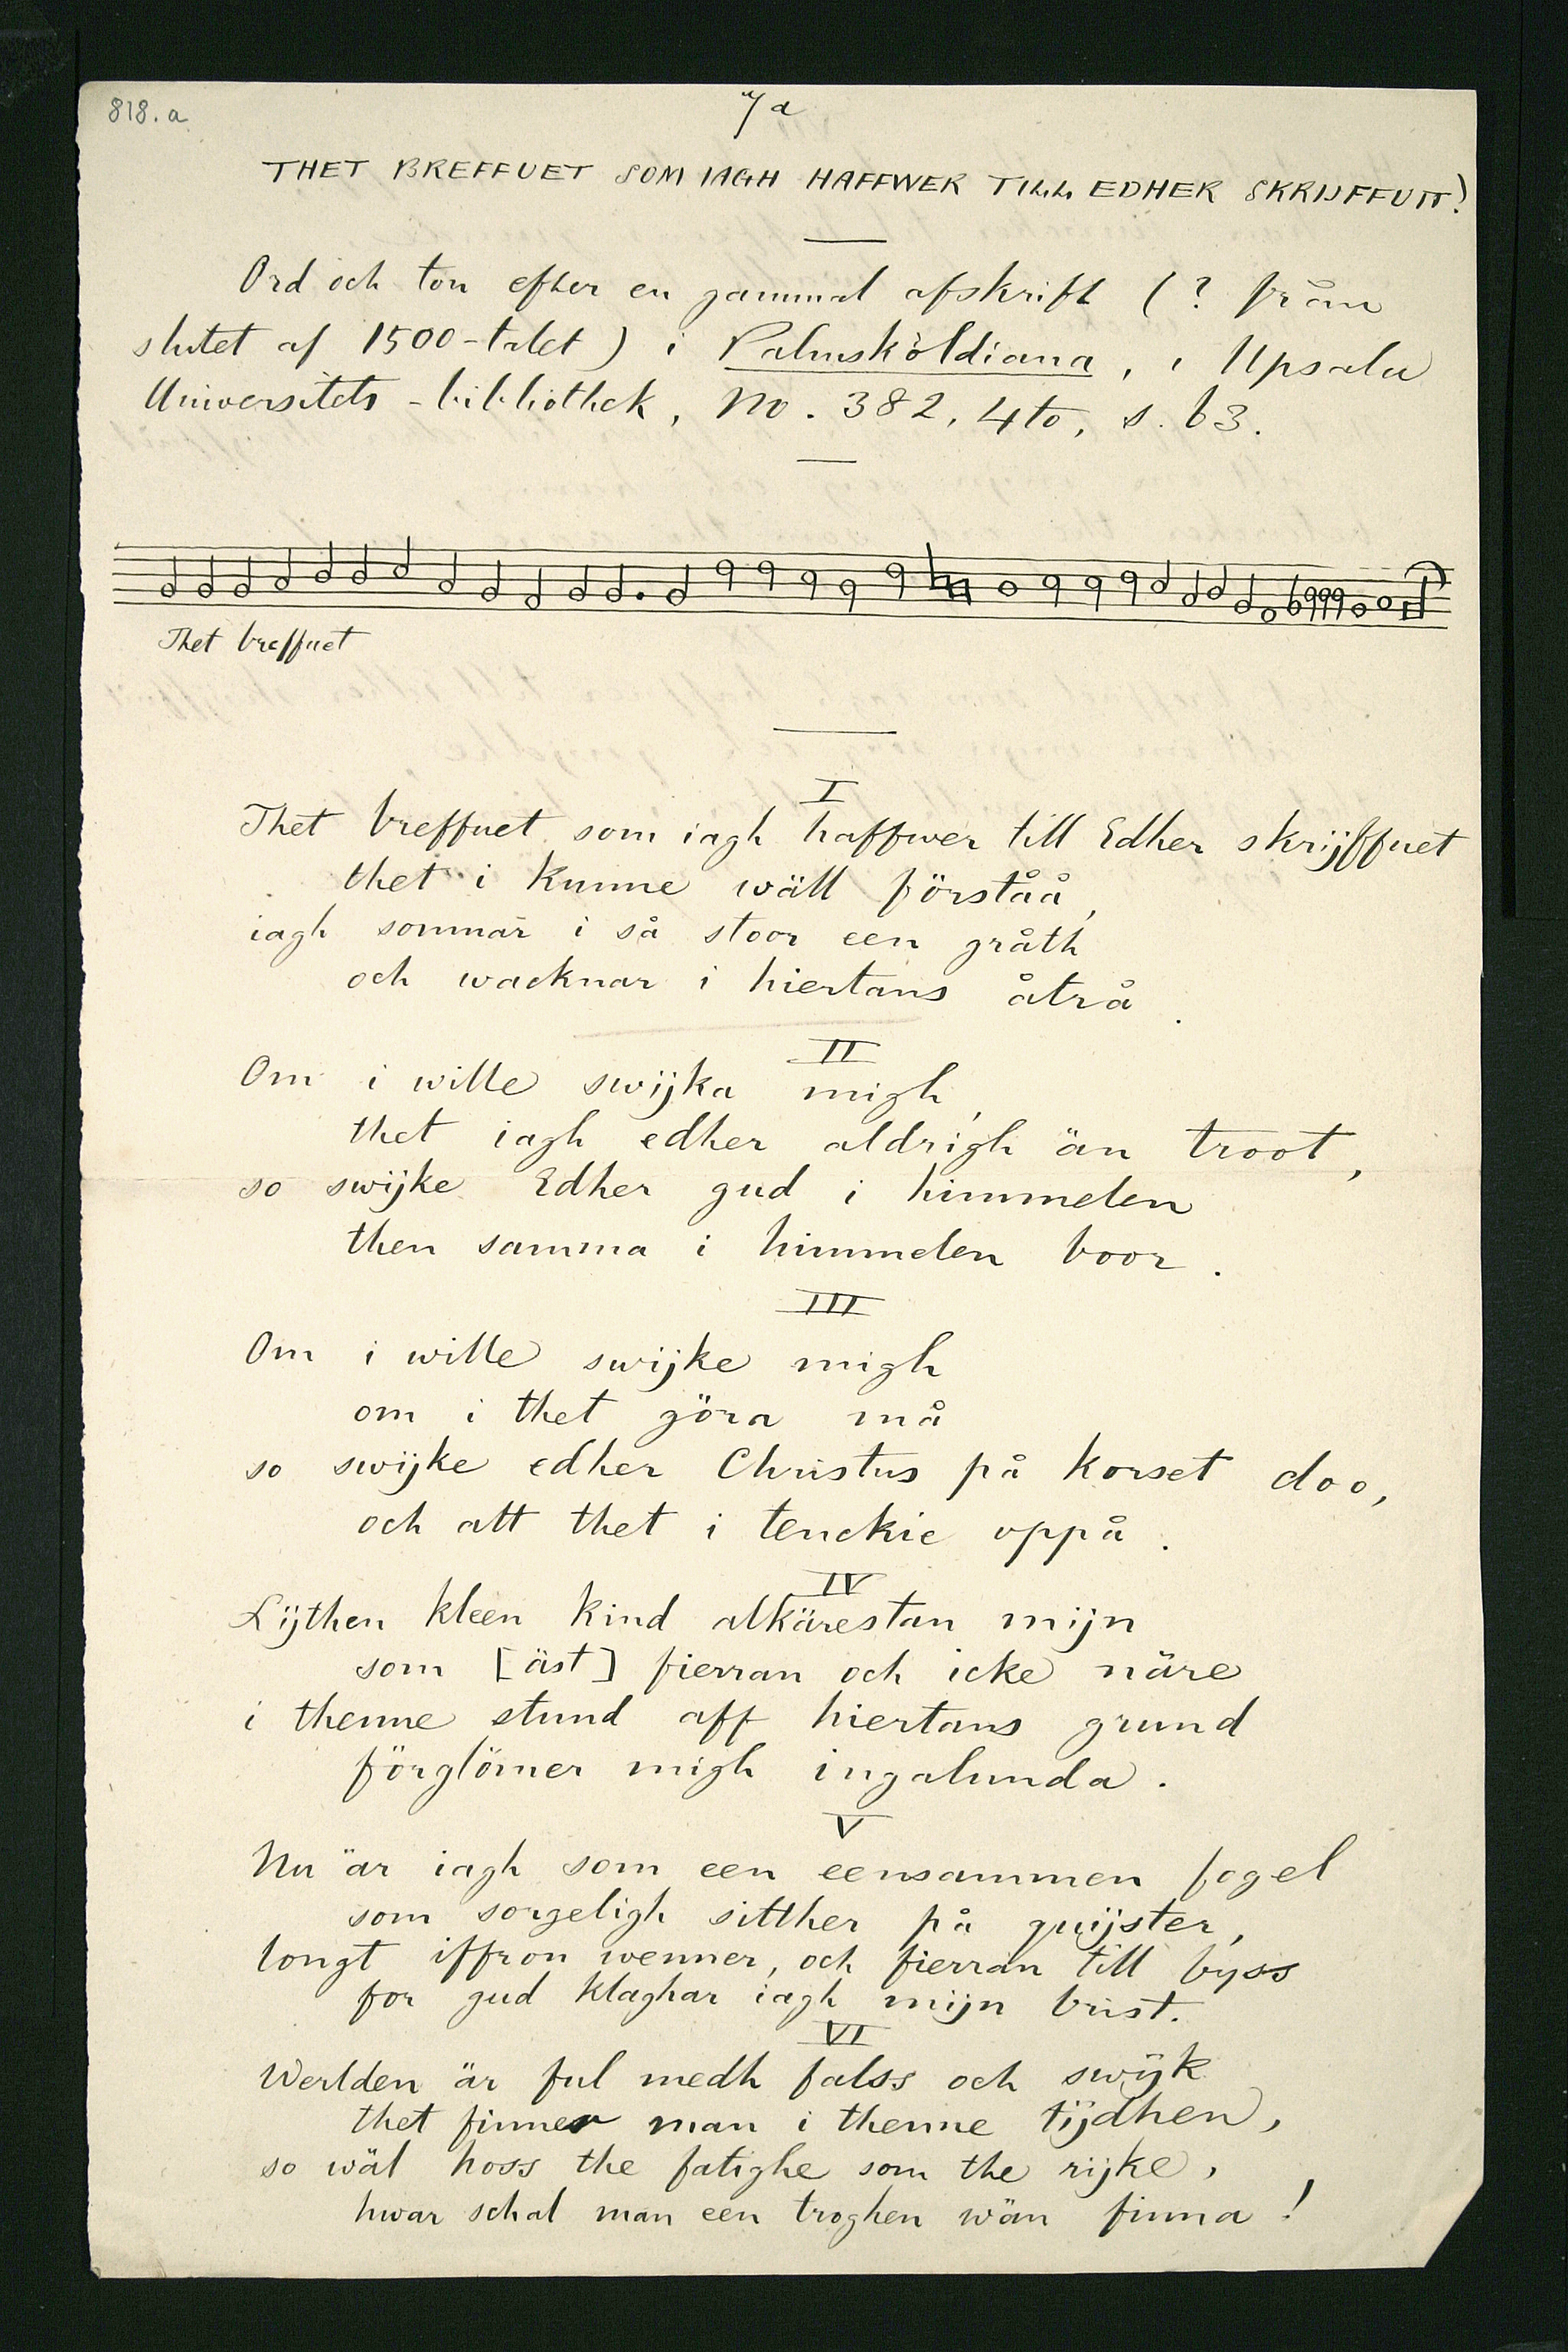 818. a
7 a
THET BREFFUET SOM IAGH HAFFWER TILL EDHER SKRIJFFUIT!
Ord och ton efter en gammal afskrift (? från
slutet af 1500-talet) i Palmsköldiana, i Upsala
Universitets-bibliothek, No. 382, 4to, s. 63.
Thet breffuet
I
Thet breffuet som iagh haffwer till Edher skrijffuet
thet i kunne wäll förståå,
iagh somnar i så stoor een gråth
och wacknar i hiertans åtrå.
II
Om i wille swijka migh,
thet iagh edher aldrigh än troot,
so swijke Edher gud i himmelen
then samma i himmelen boor.
III
Om i wille swijke migh
om i thet göra må
so swijke edher Christus på korset doo,
och att thet i tenckie oppå.
IV
Lijthen kleen kind alkärestan mijn
som [äst] fierran och icke näre
i thenne stund aff hiertans grund
förglömer migh ingalunda.
V
Nu är iagh som een eensammen fogel
som sorgeligh sitther på quijster,
longt iffron wenner, och fierran till byss
for gud klaghar iagh mijn brist.
VI
Werlden är ful medh falss och swijk
thet finner man i thenne tijdhen,
so wäl hoss the fatighe som the rijke,
hwar schal man een troghen wän finna!